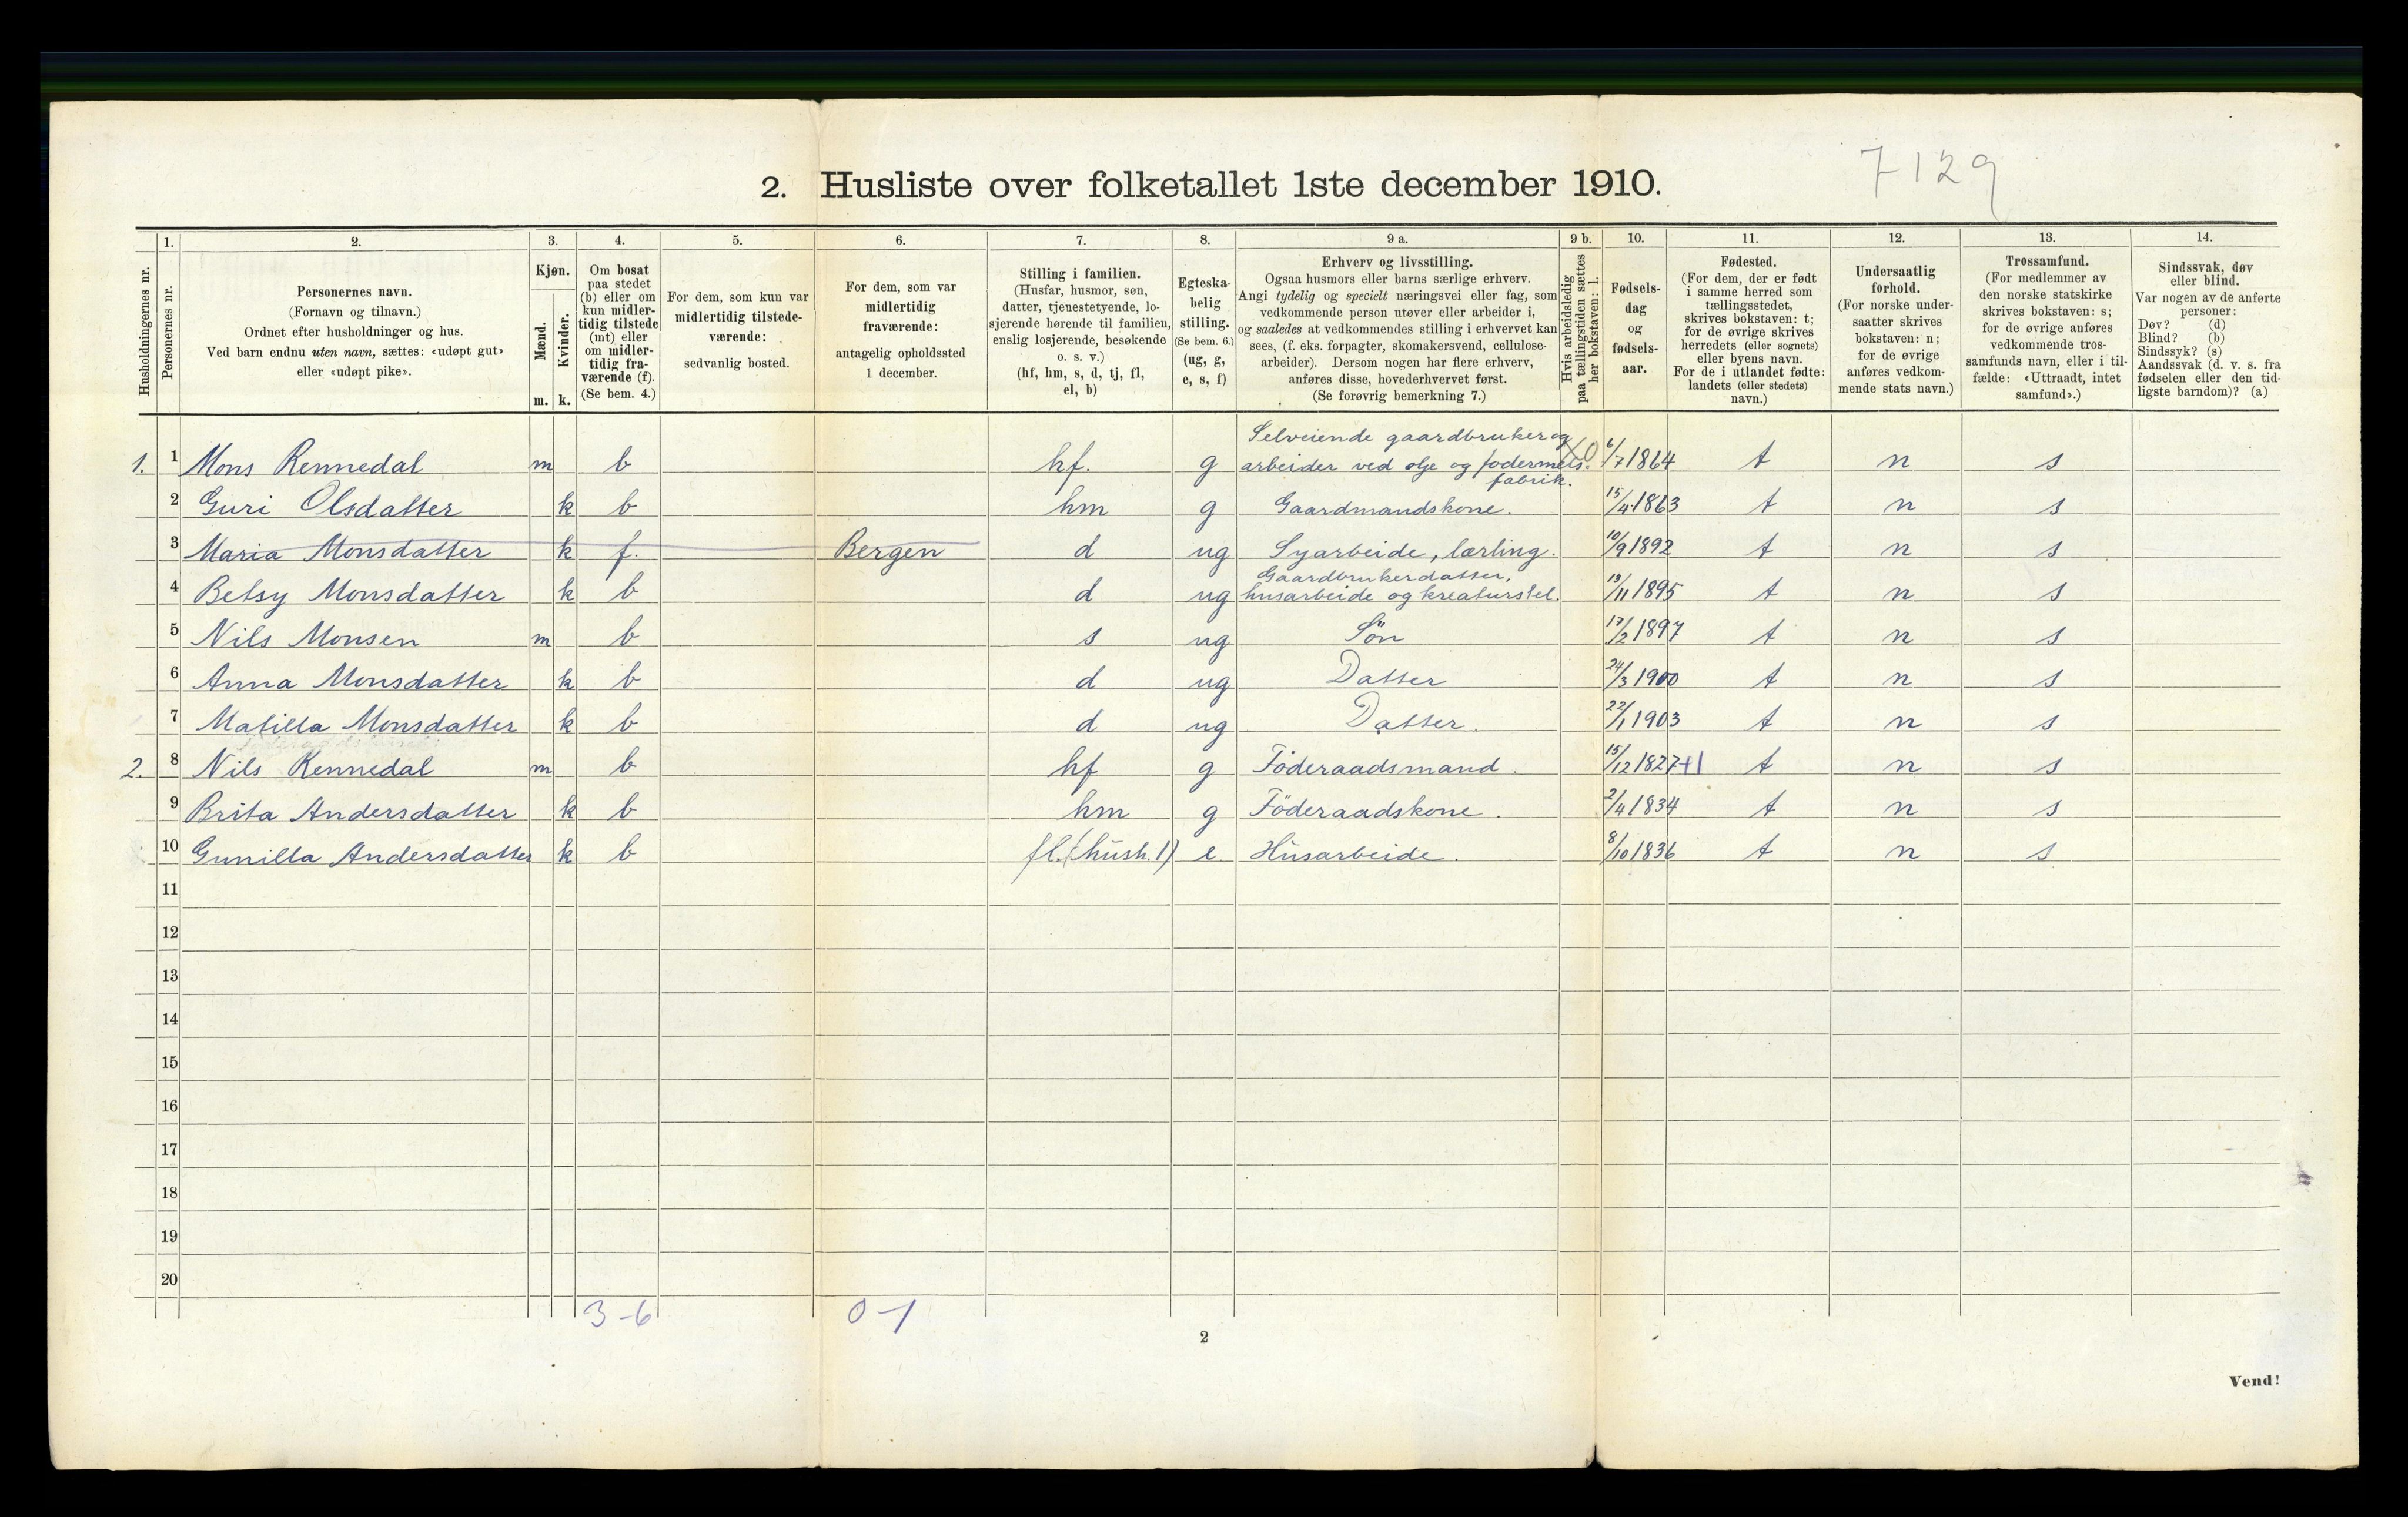 7129
2. Husliste over folketallet 1ste december 1910.
Husholdningernes nr.
1. Personernes nr.
2. Personernes navn. (Fornavn og tilnavn.) Ordnet efter husholdninger og hus. Ved barn endnu uten navn, sættes: «udøpt gut» eller «udøpt pike».
3. Kjøn. Mænd. m. Kvinder. k.
4. Om bosat paa stedet (b) eller om kun midlertidig tilstede (mt) eller om midlertidig fraværende (f). (Se bem. 4.)
5. For dem, som kun var midlertidig tilstedeværende: sedvanlig bosted.
6. For dem, som var midlertidig fraværende: antagelig opholdssted 1 december.
7. Stilling i familien. (Husfar, husmor, søn, datter, tjenestetyende, losjerende hørende til familien, enslig losjerende, besøkende o. s. v.) (hf, hm, s, d, tj, fl, el, b)
8. Egteskabelig stilling. (Se bem. 6.) (ug, g, e, s, f)
9 a. Erhverv og livsstilling. Ogsaa husmors eller barns særlige erhverv. Angi tydelig og specielt næringsvei eller fag, som vedkommende person utøver eller arbeider i, og saaledes at vedkommendes stilling i erhvervet kan sees, (f. eks. forpagter, skomakersvend, cellulosearbeider). Dersom nogen har flere erhverv, anføres disse, hovederhvervet først. (Se forøvrig bemerkning 7.)
9 b. Hvis arbeidsledig paa tællingstiden sættes her bokstaven: l.
10. Fødselsdag og fødselsaar.
11. Fødested. (For dem, der er født i samme herred som tællingsstedet, skrives bokstaven: t; for de øvrige skrives herredets (eller sognets) eller byens navn. For de i utlandet fødte: landets (eller stedets) navn.)
12. Undersaatlig forhold. (For norske undersaatter skrives bokstaven: n; for de øvrige anføres vedkommende stats navn.)
13. Trossamfund. (For medlemmer av den norske statskirke skrives bokstaven: s; for de øvrige anføres vedkommende trossamfunds navn, eller i tilfælde: «Uttraadt, intet samfund».)
14. Sindssvak, døv eller blind. Var nogen av de anførte personer: Døv? (d) Blind? (b) Sindssyk? (s) Aandssvak (d. v. s. fra fødselen eller den tidligste barndom)? (a)
1. 1 Mons Rennedal m b hf. g Selveiende gaardbruker og arbeider ved olje og fodermels-fabrik. X0 6/7 1864 t n s
2 Guri Olsdatter k b hm g Gaardmandskone. 15/4 1863 t n s
3 Maria Monsdatter k f. Bergen d ug Syarbeide, lærling. 10/9 1892 t n s
4 Betsy Monsdatter k b d ug Gaardbrukerdatter, husarbeide og kreaturstel. 13/11 1895 t n s
5 Nils Monsen m b s ug Sön 17/2 1897 t n s
6 Anna Monsdatter k b d ug Datter 24/3 1900 t n s
7 Matilla Monsdatter k b d ug Datter. 22/1 1903 t n s
2. 8 Nils Rennedal m b hf g Föderaadsmand. 15/12 1827 +1 t n s
9 Brita Andersdatter k b hm g Föderaadskone. 2/4 1834 t n s
10 Gunilla Andersdatter k b fl. (hush. 1) e Husarbeide. 8/10 1836 t n s
11
12
13
14
15
16
17
18
19
20
3-6 0-1
2
Vend!